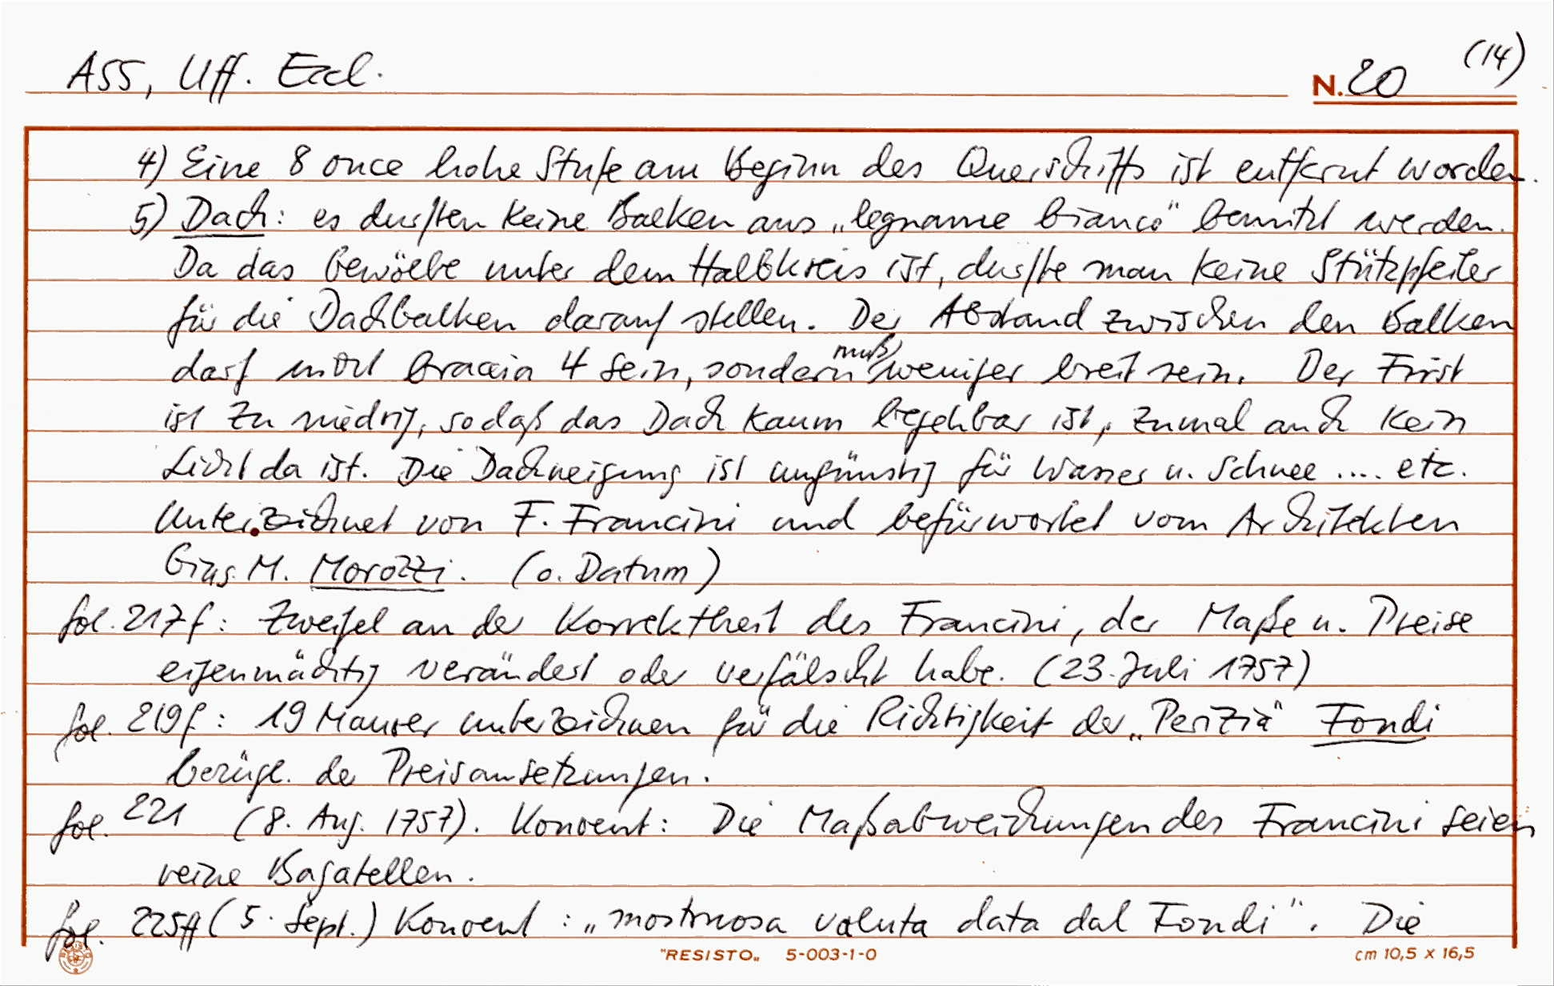 ASS, Uff. Eccl.
N. 20 (14)
4) Eine 8 once hohe Stufe am Beginn des Querschiffs ist entfernt worden.
5) Dach: es durften keine Balken aus „legname bianco" benützt werden.
Da das Gewölbe unter dem Halbkreis ist, durfte man keine Stützpfeiler
für die Dachbalken darauf stellen. Der Abstand zwischen den Balken
darf nicht braccia 4 sein, sondern muß weniger breit sein. Der First
ist zu niedrig, sodaß das Dach kaum begehbar ist, zumal auch kein
Licht da ist. Die Dachneigung ist ungünstig für Wasser u. Schnee .... etc.
Unterzeichnet von F. Francini und befürwortet vom Architekten
Gius. M. Morozzi. (o. Datum)
fol. 217f: Zweifel an der Korrektheit des Francini, der Maße u. Preise
eigenmächtig verändert oder verfälscht habe. (23. Juli 1757)
fol. 219f: 19 Maurer unterzeichnen für die Richtigkeit der „Perizia" Fondi
bezügl. der Preisansetzungen.
fol. 221 (8. Aug. 1757). Konvent: Die Maßabweichungen des Francini seien
reine Bagatellen.
fol. 225ff (5. Sept.) Konvent: „mostruosa valuta data dal Fondi". Die
"RESISTO„ 5-003-1-0
cm 10,5 x 16,5